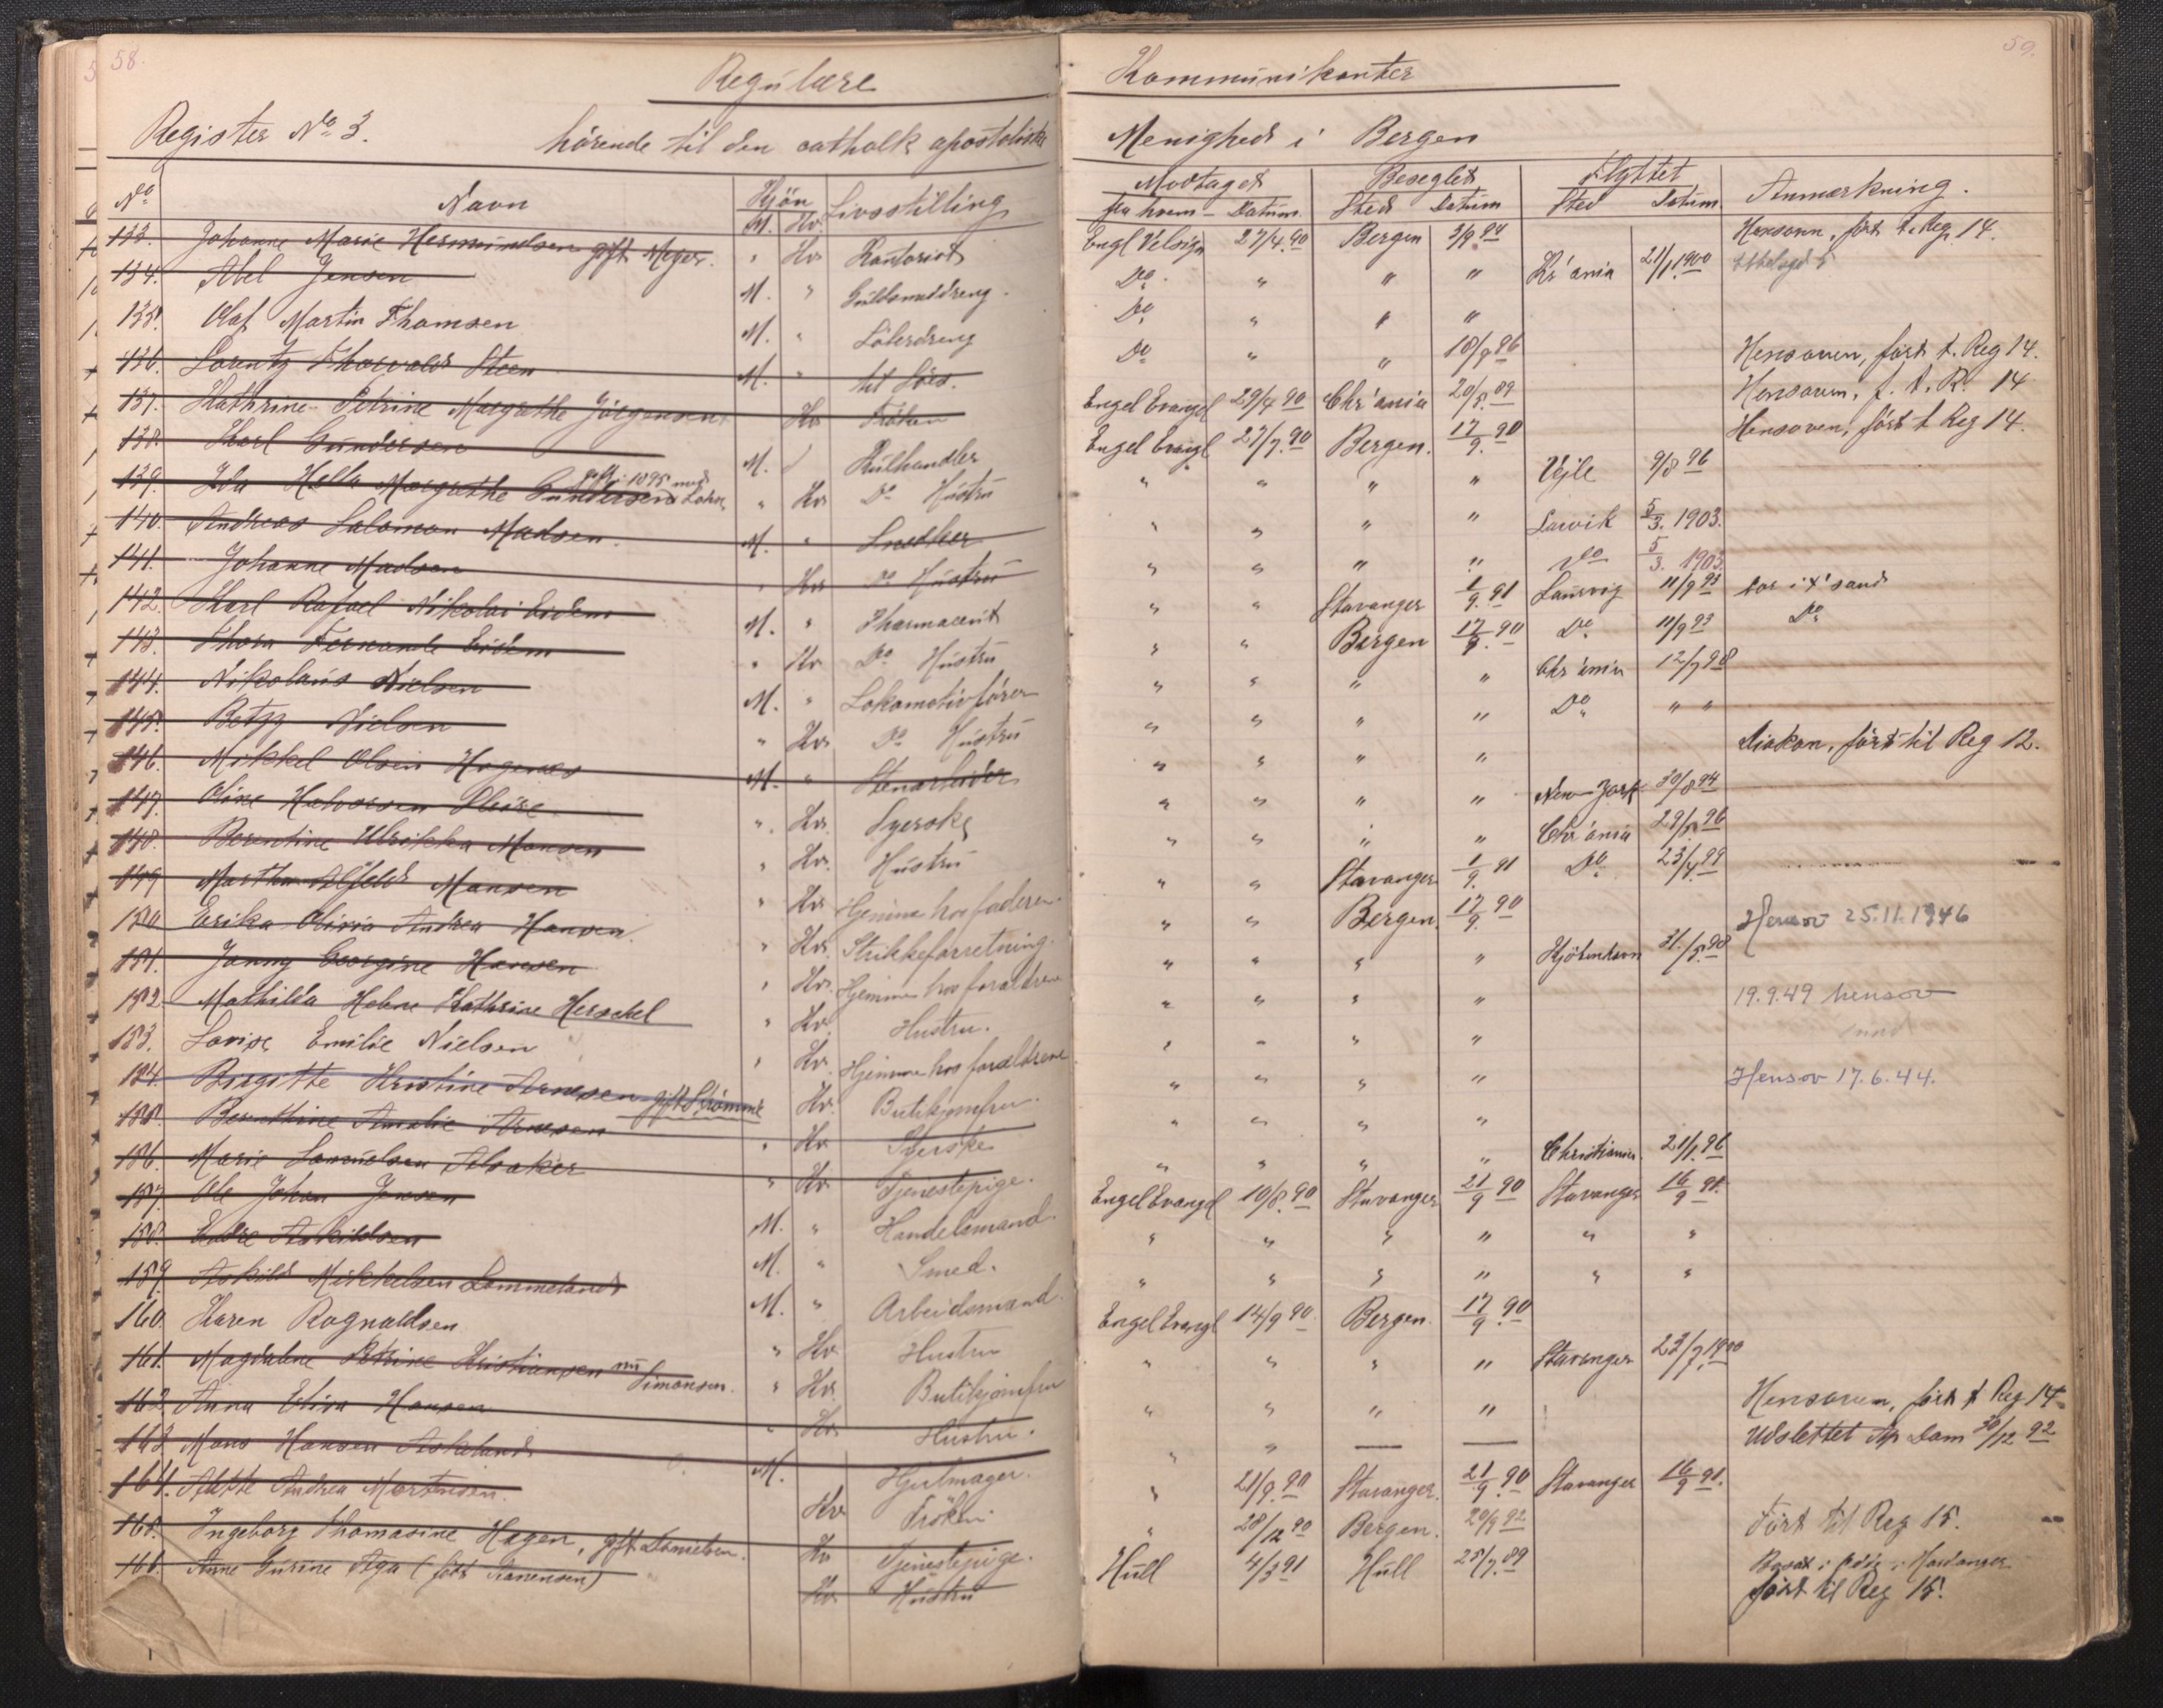 58.
Regulære
Kommunikanter
59.
Register No 3.
hörende til den cathol apostoliske
Menighed i Bergen
No
Navn
Kjön
M. Kv.
Livsstilling
Modtaget
fra hvem - Datum
Beseglet
Sted Datum
Flyttet
Sted Datum
Anmærkning.
133. Johanne Marie Hermundsen gift Meyer. " Kv Kontorist Engl Velsign 27/4.90 Bergen 3/9 94 Hensoven, fört t. Reg. 14.
134. Abel Jensen M. " Guldsmeddreng. Do " " " Kr'ania 21/1 1900
135. Olaf Martin Thomsen M. " Löberdreng Do " " "
136. Lorentz Thorvald Steen M. " til Söes. Do " " 18/9 96 Hensoven, fört t. Reg 14.
137. Kathrine Petrine Margrethe Jörgensen Kv Fröken Engel Evangel 29/4 90 Chr'ania 20/8.89 Hensoven, f. t. R. 14
138. Karl Gundersen M. Kulhandler Engel Evangl 27/7.90 Bergen. 17/9.90 Hensoven, fört t Reg 14.
139. Ida Hella Margrethe Gundersen gift i 1895 med " Kv Do Hustru " " " " Vejle 9/8 96
140. Andreas Salomon Madsen. M. " Snedker " " " " Larvik 5/3. 1903.
141. Johanne Madsen " Kv Do Hustru " " " " Do 5/3. 1903
142. Karl Rafael Nikolai Eidem M. " Pharmaceut " " Stavanger 1/9.91 Laurvig 11/9 93 bor i X'sand
143. Thora Fernanda Eidem " Kv Do Hustru " " Bergen 17/9.90 Do 11/9 93 Do
144. Nikolaus Nielsen M. " Lokomotivförer " " " " Chr'ania 12/7 98
145. Betzy Nielsen " Kv Do Hustru " " " " Do " "
146. Mikkel Olsen Hagenes M. " Stenarbeider " " " " Diakon, fört til Reg 12.
147. Oline Halvorsen " Kv. Syerske " " " " New York 30/8 94
148. Berentine Ulrikka Monsen " Kv. Hustru " " " " Chr'ania 29/5 96
149 Martha Alfild Monsen " Kv Hjemme hos faderen. " " Stavanger 1/9. 91 Do 23/4.99
150 Erika Olivia Andrea Hansen. " Kv. Strikkeforretning. " " Bergen 17/9. 90 Hensov 25.11.1946
151. Jenny Georgine Hansen " Kv. Hjemme hos forældrene " " " " Kjöbenhavn 31./5.98
152. Mathilda Helene Kathrine Herschel " Kv. Hustru. " " " " 19.9.49 hensov
153. Lovise Emilie Nielsen " Kv. Hjemme hos forældrene " " " "
154. Birgitte Kristine Arnesen gift Strömme Kv. Butikjomfru. " " " " Hensov 17.6.44.
155. Berenthine Amalie Arnesen " Kv. " " " "
156. Marie Samuelsen Alsaker " Kv. Tjenestepige. " " " " Christiania. 21/1.96
157. Ole Johan Jensen M. " Handelsmand. Engel Evangel 10/8.90 Stavanger 21/9 90 Stavanger 16/9 91.
158. Endre Askildsen M. " Smed. " " " " " "
159. Askild Mikkelsen Lammeland M. " Arbeidsmand. " " " " " "
160. Karen Rognaldsen " Kv Hustru Engel Evangl 14/9 90 Bergen. 17/9.90
161. Magdalene Petrine Kristiansen nu Simonsen. " Kv. Butikjomfru " " " " Stavanger 23/7.1900
162. Anna Elisa Hansen " Kv. Hustru. " " " " Hensoven, fört t Reg 14
163 Mons Hansen Askeland M. Hjulmager. " " — — Udslettet Dom 30/12 92
164. Alette Andrea Mortensen. Kv. Fröken " 21/9.90 Stavanger. 21/9.90 Stavanger 16/9 91.
165. Ingeborg Thomasine Hagen, gift Danielsen. Kv Tjenestepige. " 28/12 90 Bergen. 20/9 92 Fört til Reg 15.
166. Anne Gurine Aga (född Aanensen) Kv. Hustru Hull 4/3 91 Hull 25/7.89 Bosat i Odde i Hardanger
fört til Reg 15.